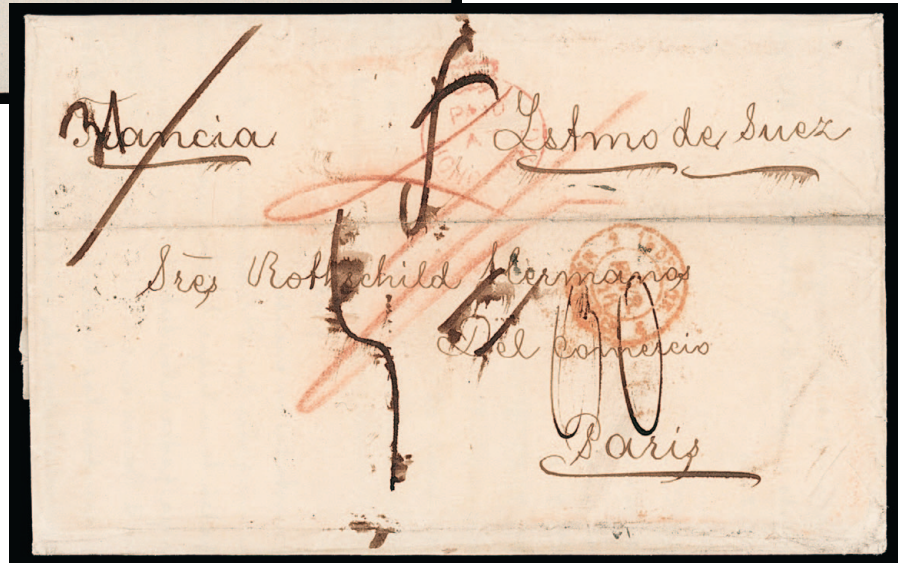 Francia Istmo de Suez
Sres Rothschild Hermanos
Del Comercio
Paris